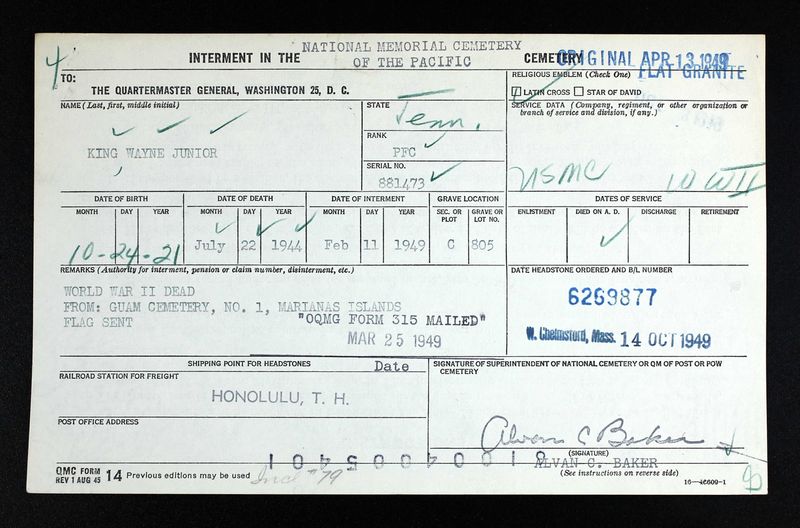 4
INTERMENT IN THE NATIONAL MEMORIAL CEMETERY OF THE PACIFIC CEMETERY
ORIGINAL APR 13 1949
FLAT GRANITE
TO:
THE QUARTERMASTER GENERAL, WASHINGTON 25, D. C.
RELIGIOUS EMBLEM (Check One)
LATIN CROSS STAR OF DAVID
NAME (Last, first, middle initial)
KING WAYNE JUNIOR
STATE
Tenn.
RANK
PFC
SERIAL NO.
881473
SERVICE DATA (Company, regiment, or other organization or branch of service and division, if any.)
USMC WWII
DATE OF BIRTH DATE OF DEATH DATE OF INTERMENT GRAVE LOCATION DATES OF SERVICE
MONTH DAY YEAR MONTH DAY YEAR MONTH DAY YEAR SEC. OR PLOT GRAVE OR LOT NO. ENLISTMENT DIED ON A. D. DISCHARGE RETIREMENT
10-24-21 July 22 1944 Feb 11 1949 C 805
REMARKS (Authority for interment, pension or claim number, disinterment, etc.)
WORLD WAR II DEAD
FROM: GUAM CEMETERY, NO. 1, MARIANAS ISLANDS
FLAG SENT
"OQMG FORM 315 MAILED"
MAR 25 1949
DATE HEADSTONE ORDERED AND B/L NUMBER
6269877
W. Chelmsford, Mass. 14 OCT 1949
SHIPPING POINT FOR HEADSTONES Date
RAILROAD STATION FOR FREIGHT
HONOLULU, T. H.
POST OFFICE ADDRESS
SIGNATURE OF SUPERINTENDENT OF NATIONAL CEMETERY OR QM OF POST OR POW CEMETERY
Alvan C Baker
(SIGNATURE)
ALVAN C. BAKER
(See instructions on reverse side)
QMC FORM
REV 1 AUG 45 14 Previous editions may be used
Incl #79
16—46609-1